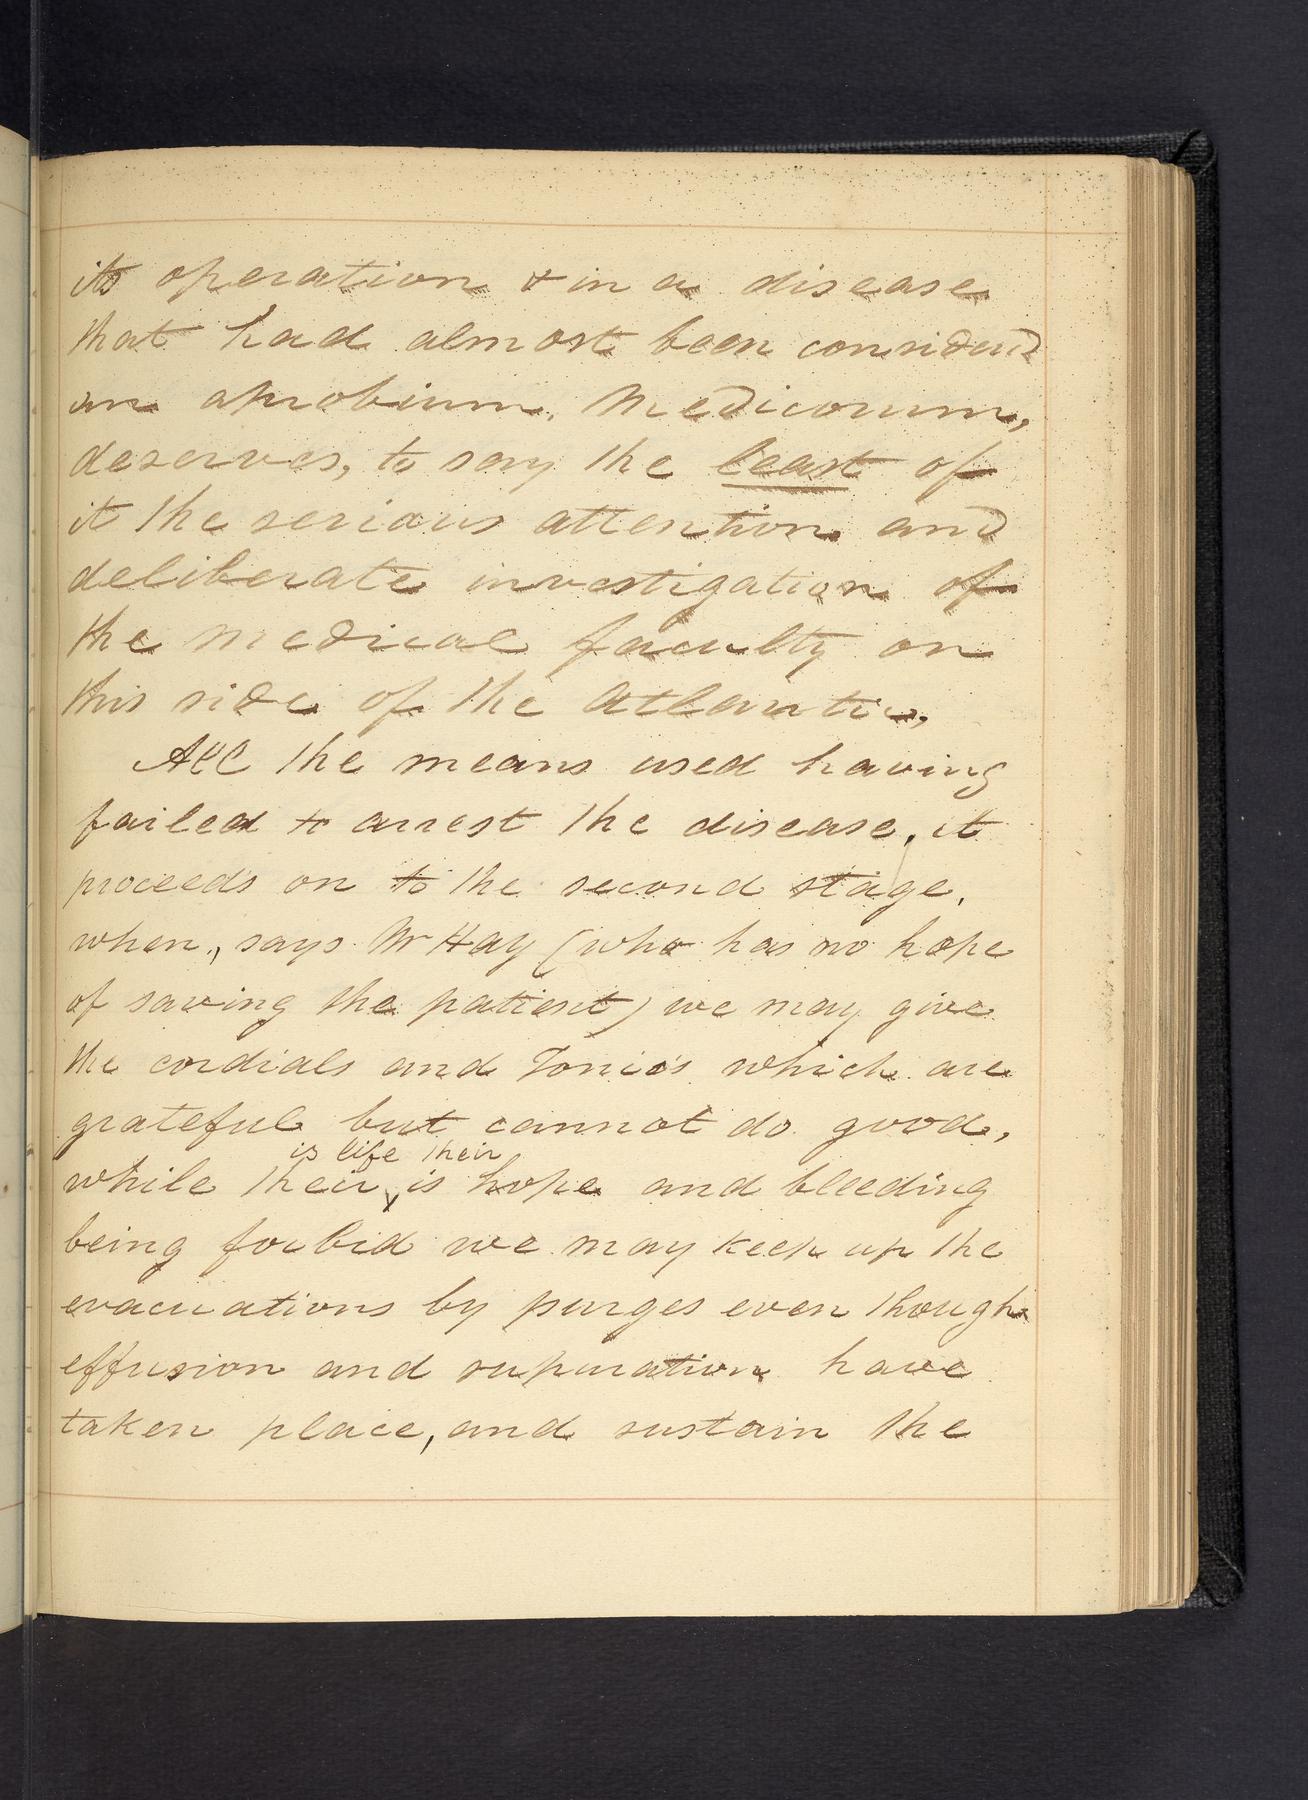 its operation & in a disease
that had almost been considerd
an aprobium. Medicorum,
deserves, to say the least of
it the serious attention and
deliberate investigation of
the medical faculty on
this side of the Atlantic,
All the means used having
failed to arrest the disease, it
proceeds on to the second stage.
when, says Mr Hay (who has no hope
of saving the patient) we may give
the cordials and Tonics which are
grateful but cannot do good,
is life their
while their is hope and bleeding
being forbid we may keep up the
evacuations by purges even though
effusion and supuration have
taken place, and sustain the